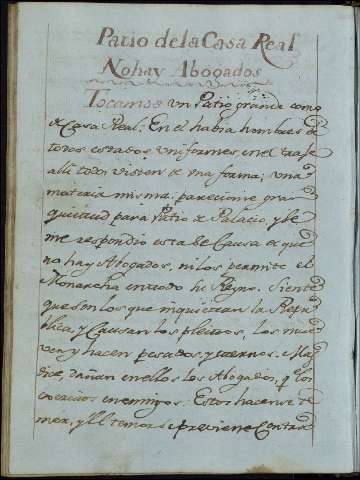 Patio de la Casa Real
No hay Abogados
Tocamos un Patio grande como
de Casa Real. En el habia hombres de
todos estados uniformes en el traje
alli todos visten de una forma, y una
materia misma: pareciome gran
quietud para Patio de Palacio, y se
me respondio esta es Causa de que
no hay Abogados, ni los permite el
Monarcha en todo su Reyno. Siente
que son los que inquietan la Repu
blica, y Causan los pleitos, los mue
ven y hacen pesados, y eternos. Mas
dixe, dañan en ellos los Abogados, q los
enemigos. Estos hacense te
mer, y el temor se previene contra